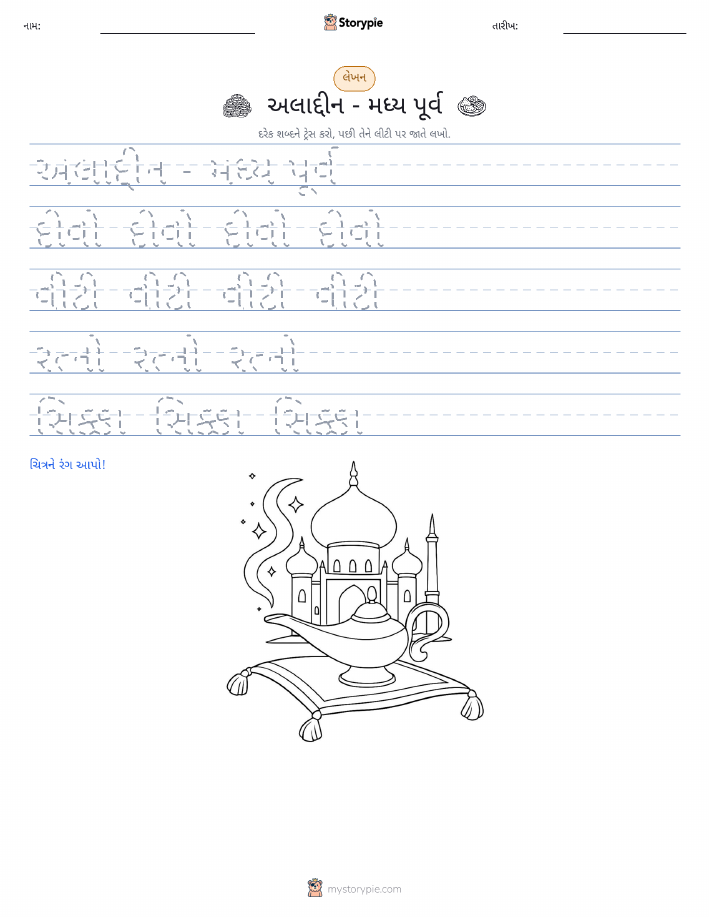 નામ: Storypie તારીખ:
લેખન
અલાદ્દીન - મધ્ય પૂર્વ
દરેક શબ્દને ટ્રેસ કરો, પછી તેને લીટી પર જાતે લખો.
અલાદ્દીન - મધ્ય પૂર્વ
દીવો દીવો દીવો દીવો
વીંટી વીંટી વીંટી વીંટી
રત્નો રત્નો રત્નો
સિક્કા સિક્કા સિક્કા
ચિત્રને રંગ આપો!
mystorypie.com